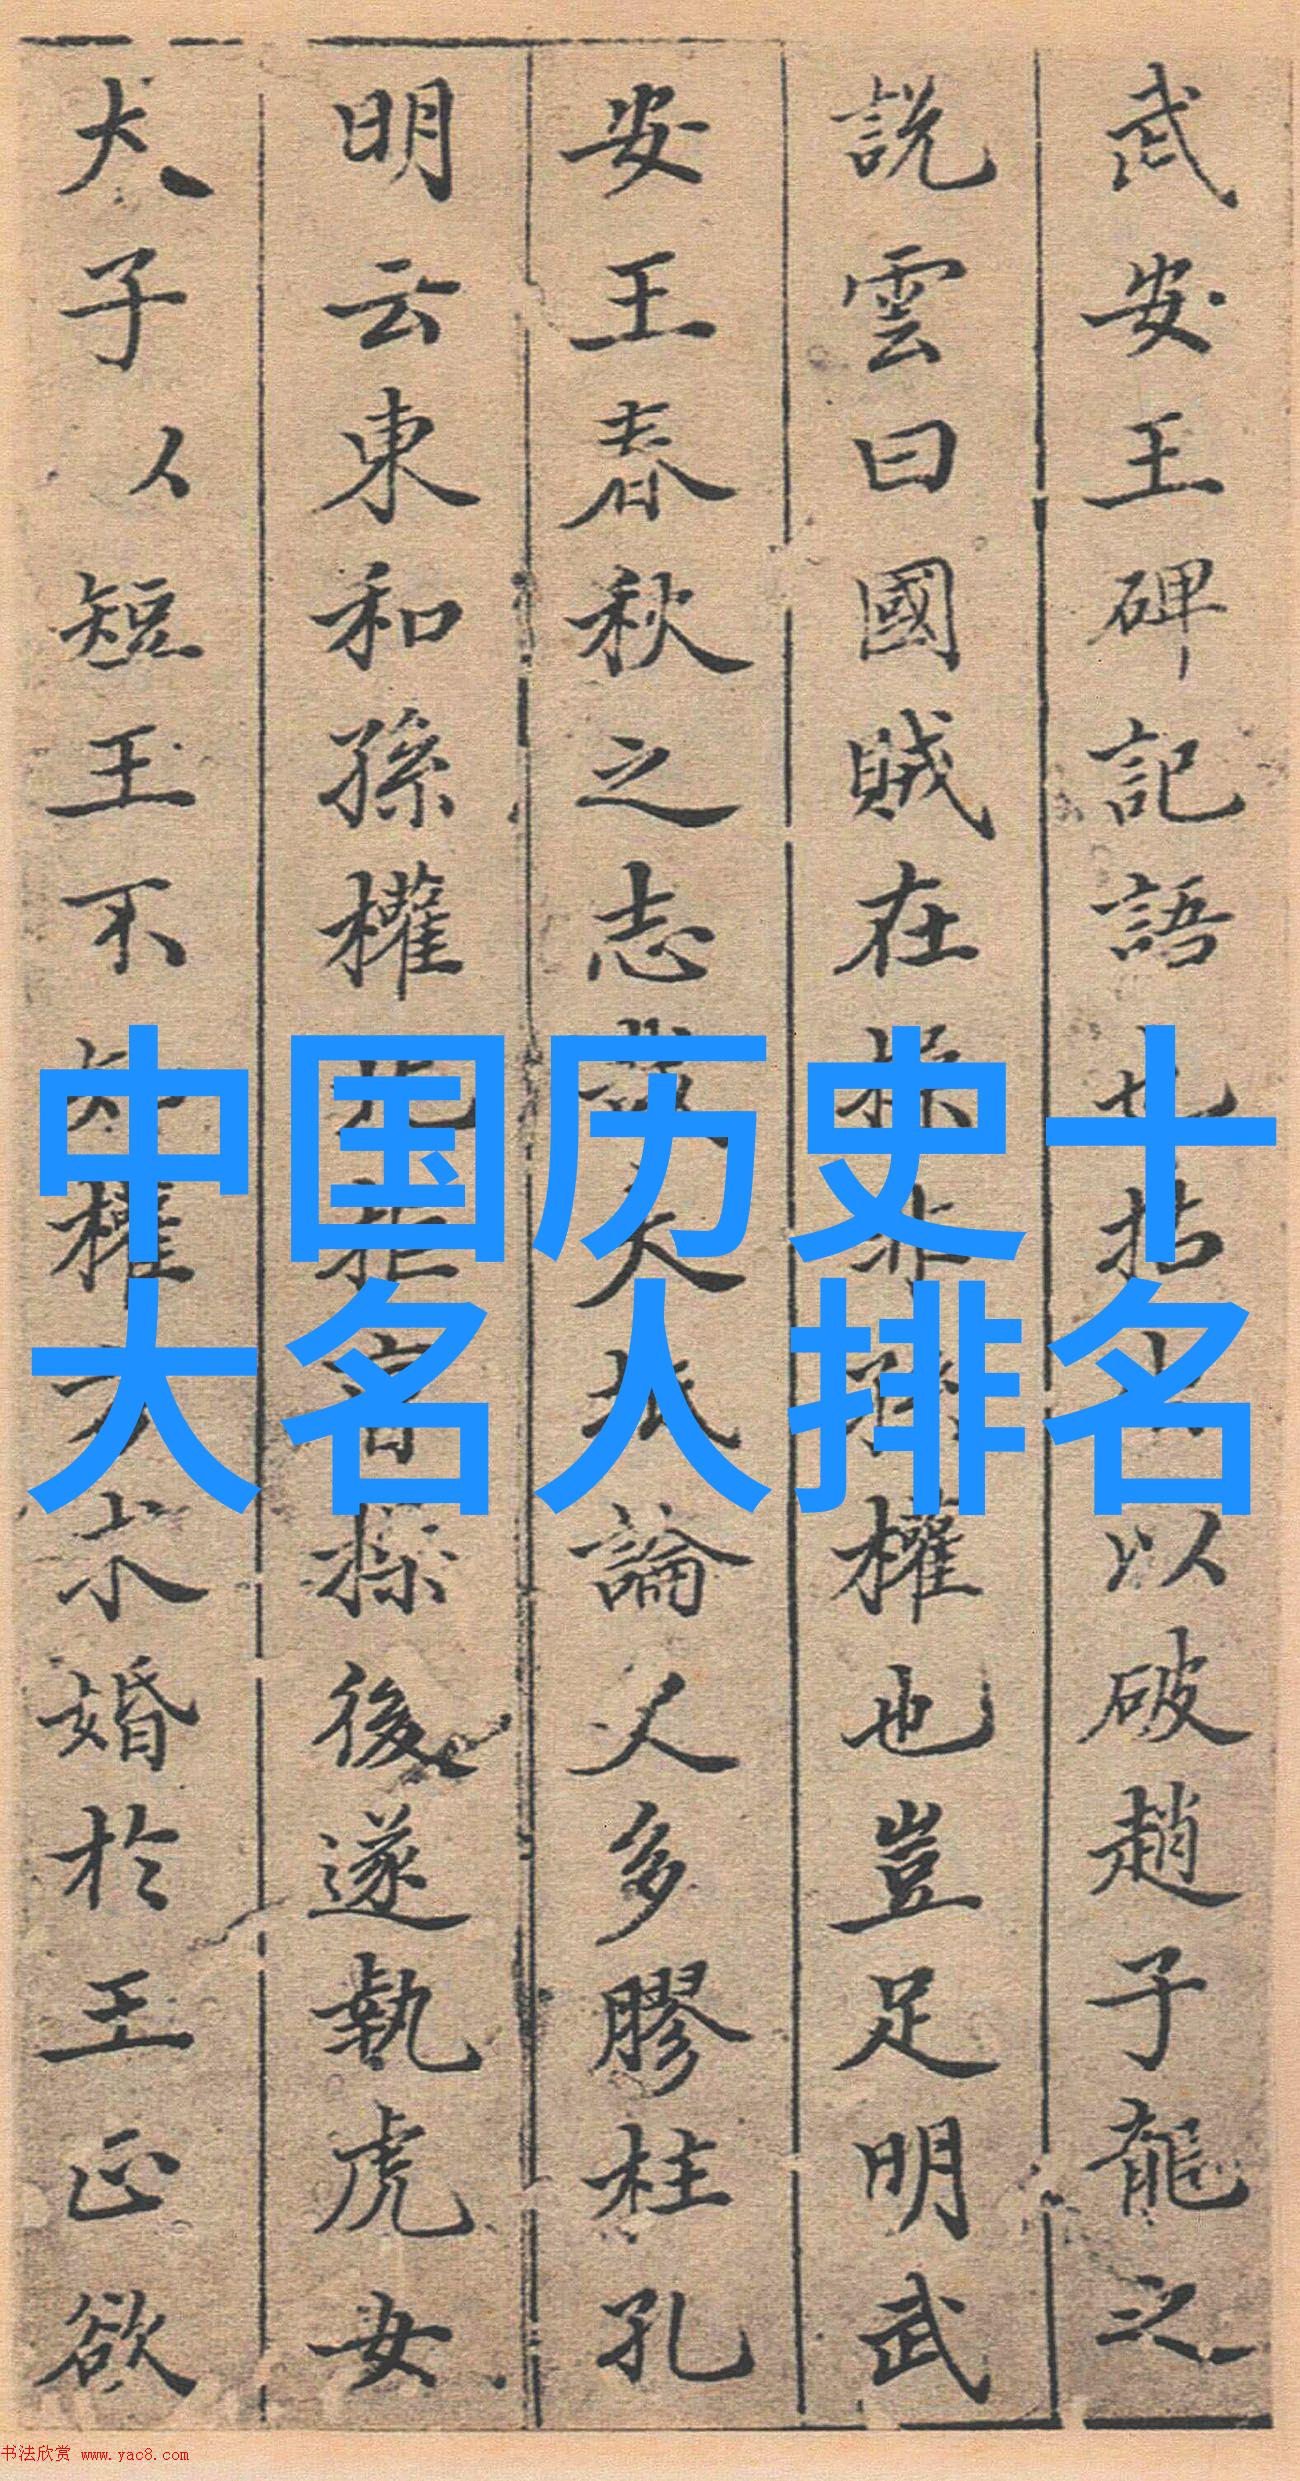 武安王碑記語也拈以破趙子龍之
說雲曰國賊在操非孫權也豈足明武
安王春秋之志哉夫抵論人多膠柱孔
明云東和孫權北拒曹操後遂執虎女
大子以短王不知權求婚於王正欲
中国历史十
大名人排名
书法欣赏 www.yac8.com